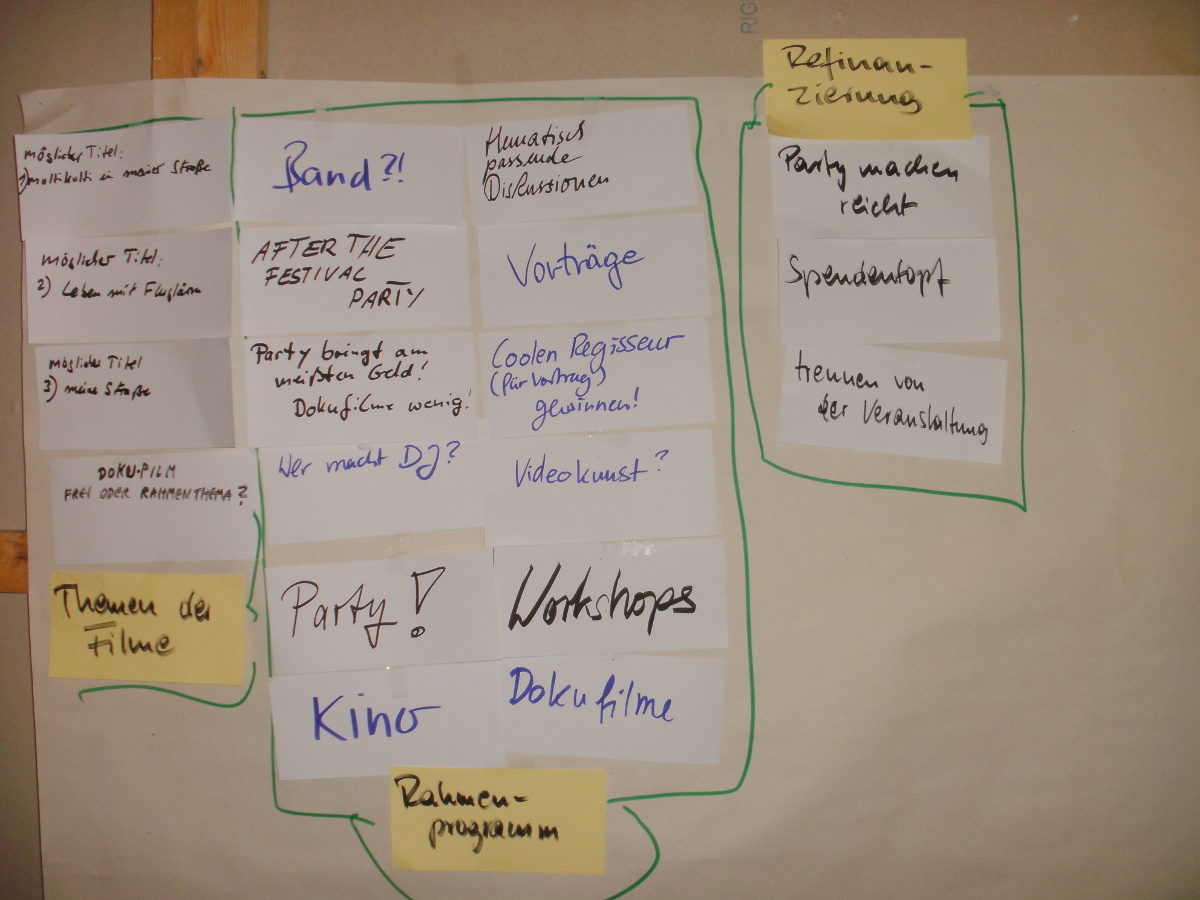 RIG
möglicher Titel:
1) multikulti in meiner Straße
möglicher Titel:
2) Leben mit Fluglärm
möglicher Titel
3) meine Straße
DOKU-FILM
FREI ODER RAHMENTHEMA?
Themen der
Filme
Band?!
AFTER THE
FESTIVAL
PARTY
Party bringt am
meißten Geld!
Dokufilme wenig!
Wer macht DJ?
Party!
Kino
Thematisch
passende
Diskussionen
Vorträge
Coolen Regisseur
(für Vortrag)
gewinnen!
Videokunst?
Workshops
Dokufilme
Rahmen-
programm
Refinan-
zierung
Party machen
reicht
Spendentopf
trennen von
der Veranstaltung